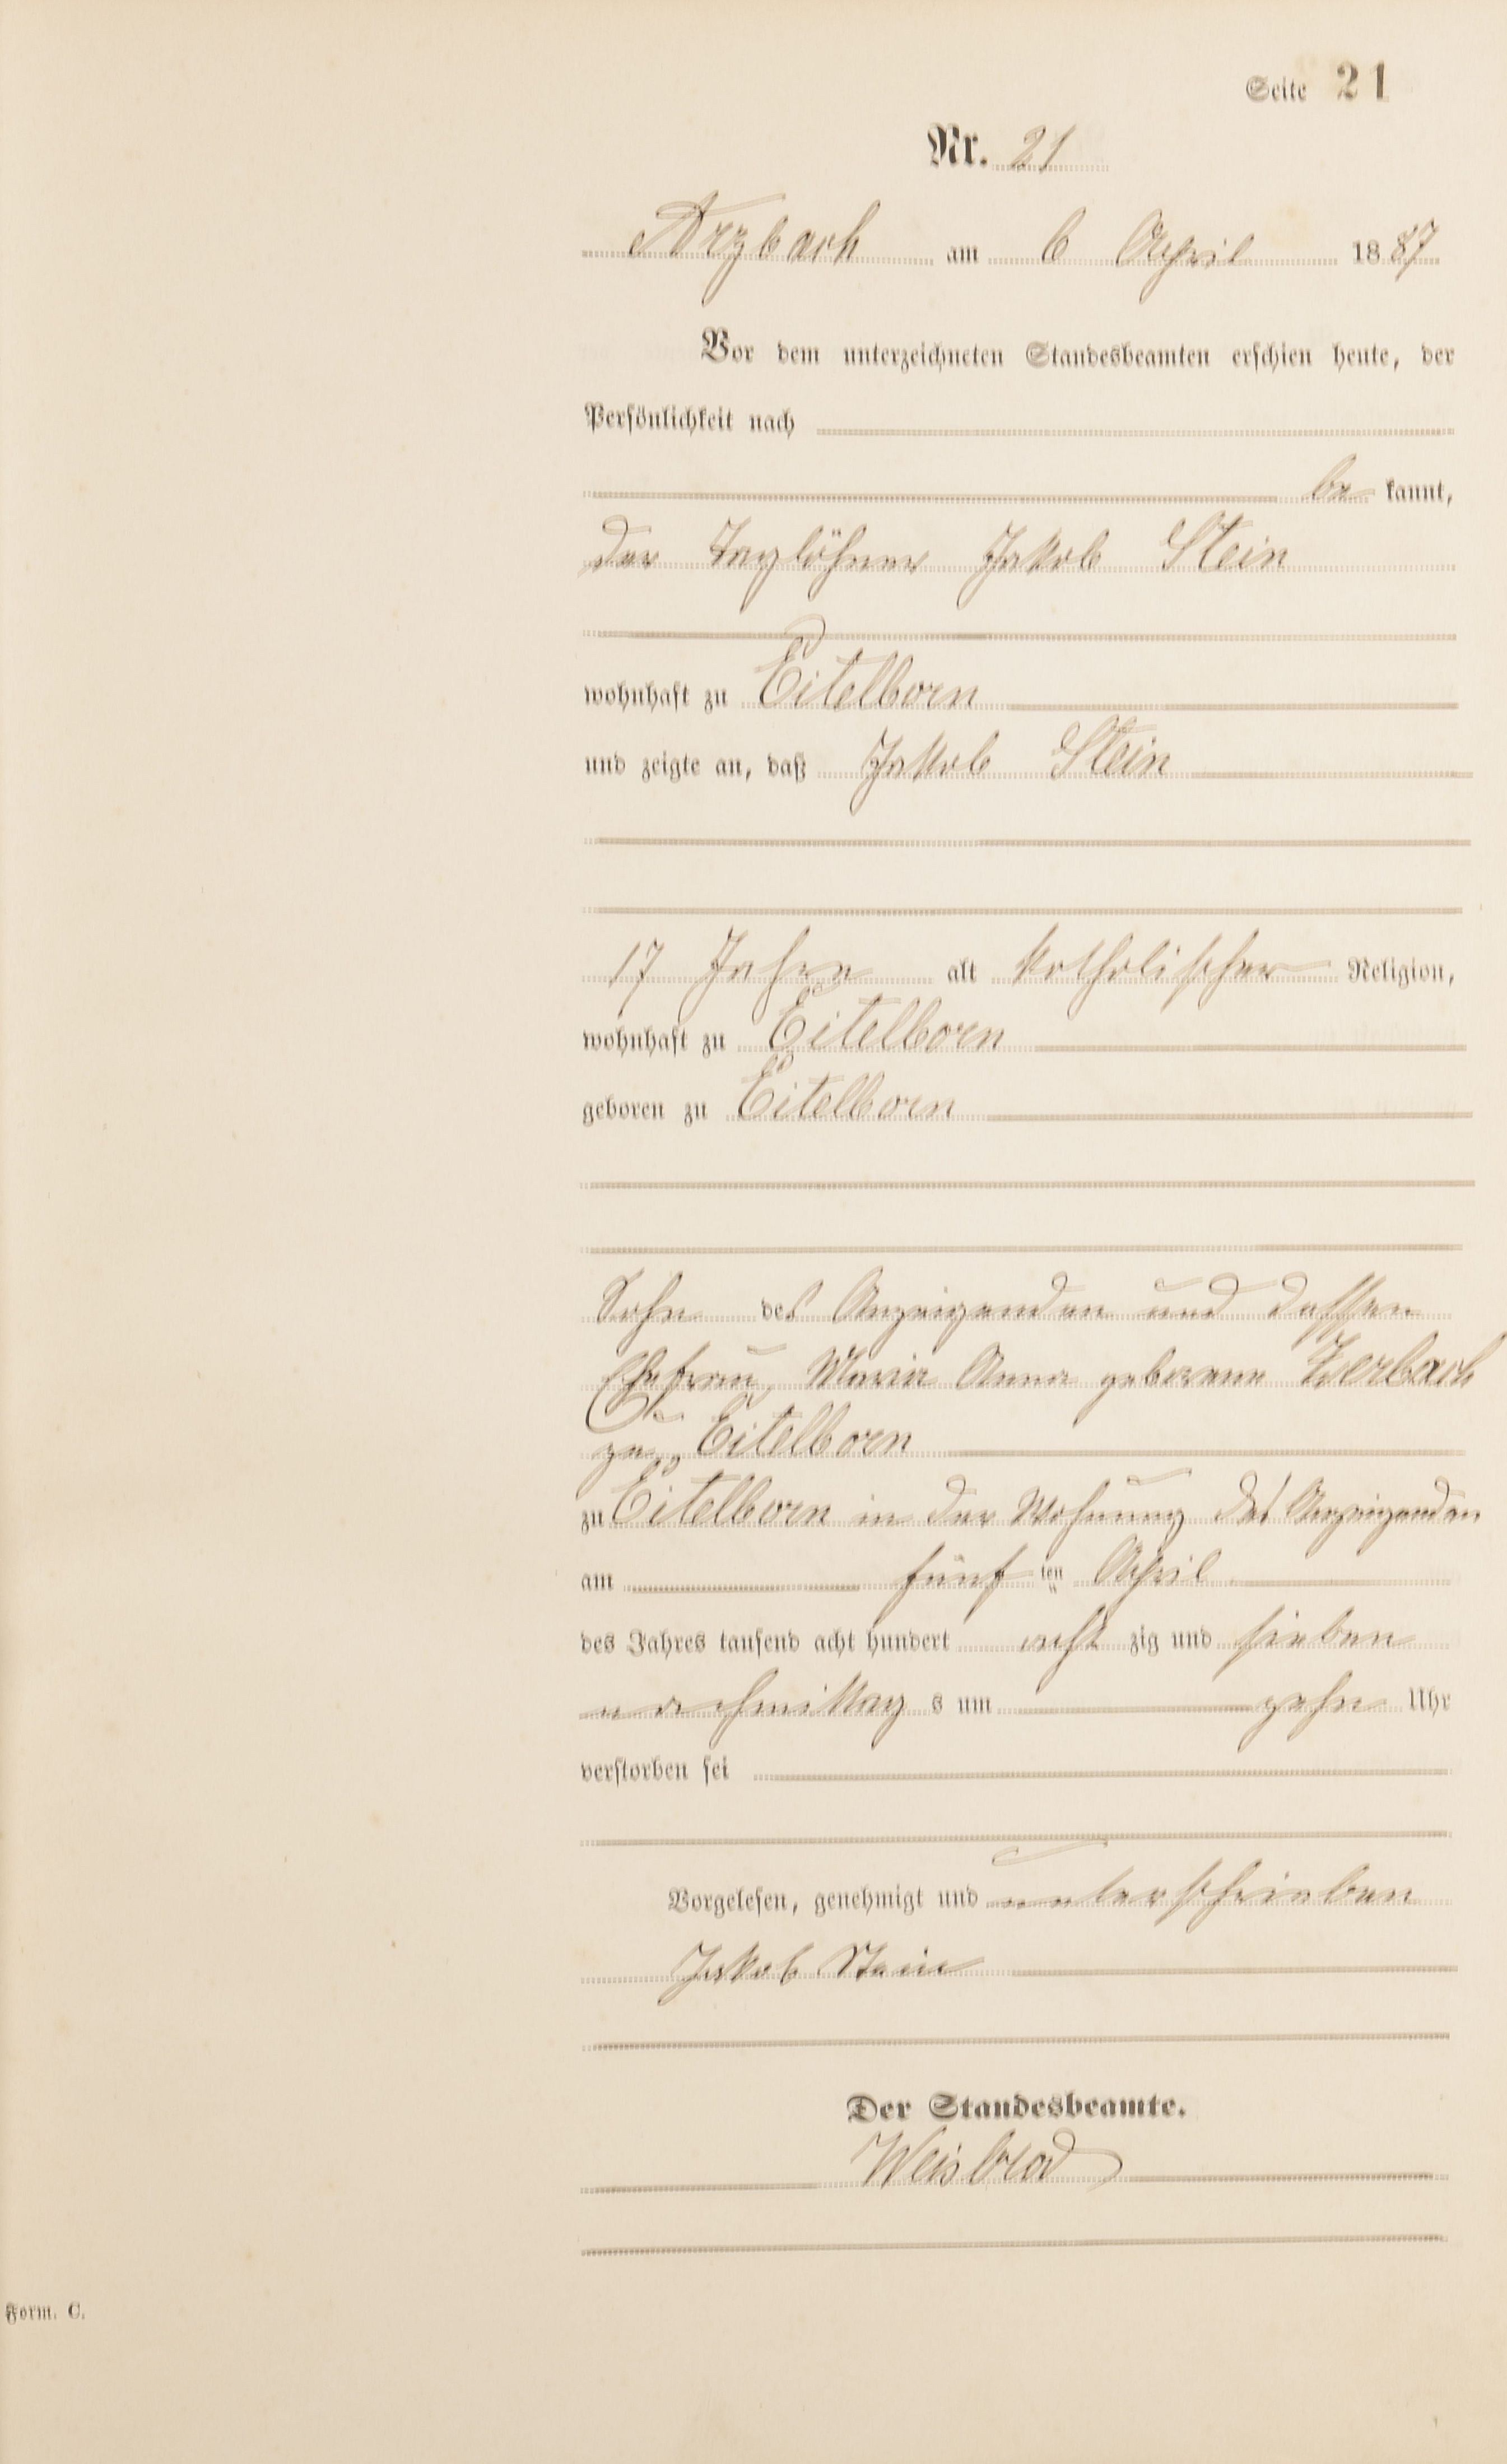 Seite 21
Nr. 21
Arzbach am 6 April 1887
Vor dem unterzeichneten Standesbeamten erschien heute, der
Persönlichkeit nach
be kannt,
der Taglöhner Jakob Stein
wohnhaft zu Eitelborn
und zeigte an, daß Jakob Stein
17 Jahre alt katholischer Religion,
wohnhaft zu Eitelborn
geboren zu Eitelborn
Sohn des Anzeigenden und dessen
Ehefrau, Maria Anna geborene
zu Eitelborn
zu Eitelborn in der Wohnung des Anzeigenden
am fünf ten April
des Jahres tausend acht hundert acht zig und sieben
nachmittag s um zehn Uhr
verstorben sei
Vorgelesen, genehmigt und unterschrieben
Jakob Stein
Der Standesbeamte.
Weisbrod
Form. C.